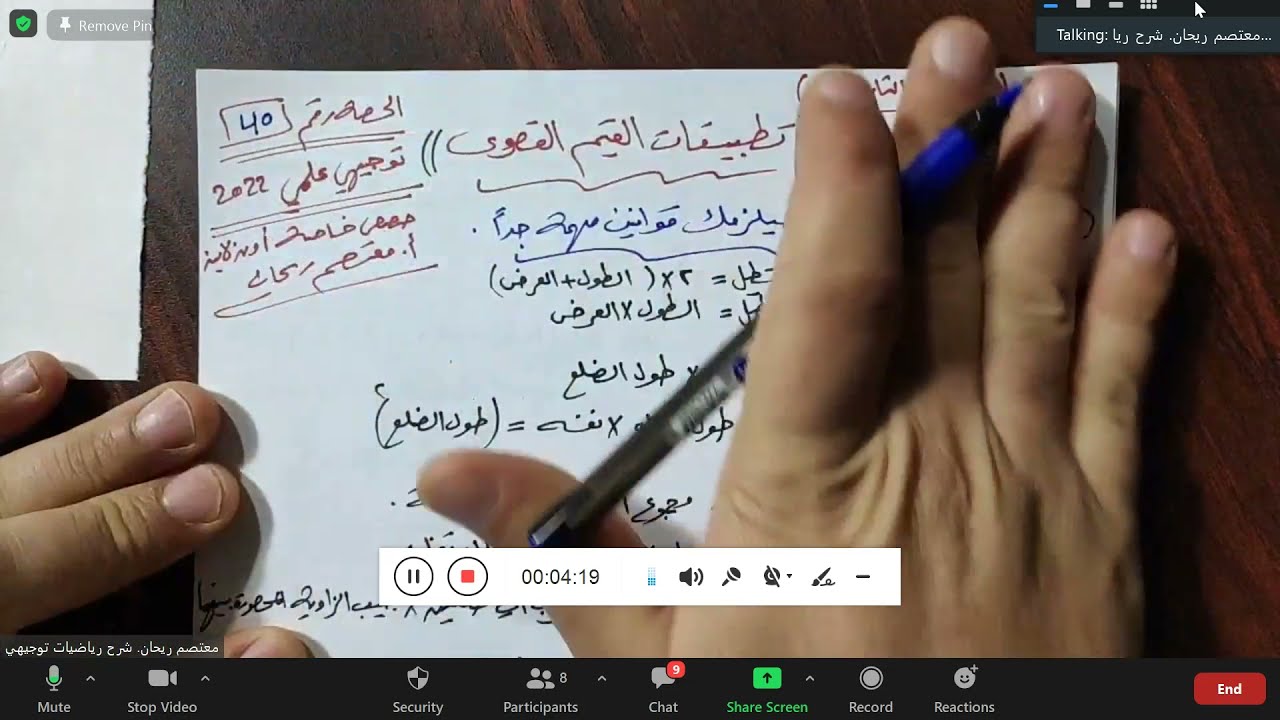 Remove Pin
Talking: معتصم ريحان. شرح ريا...
الحصة رقم 40
توجيهي علمي 2022
حصص خاصة أونلاين
أ. معتصم ريحان
تطبيقات القيم القصوى ))
يلزمك قوانين مهمة جداً .
= ٢ × ( الطول + العرض)
= الطول × العرض
× طول الضلع
طول × نفسه = (طول الضلع)²
مجموع
الزاوية المحصورة بينهما
00:04:19
معتصم ريحان. شرح رياضيات توجيهي
Mute
Stop Video
Security
8
Participants
9
Chat
Share Screen
Record
Reactions
End